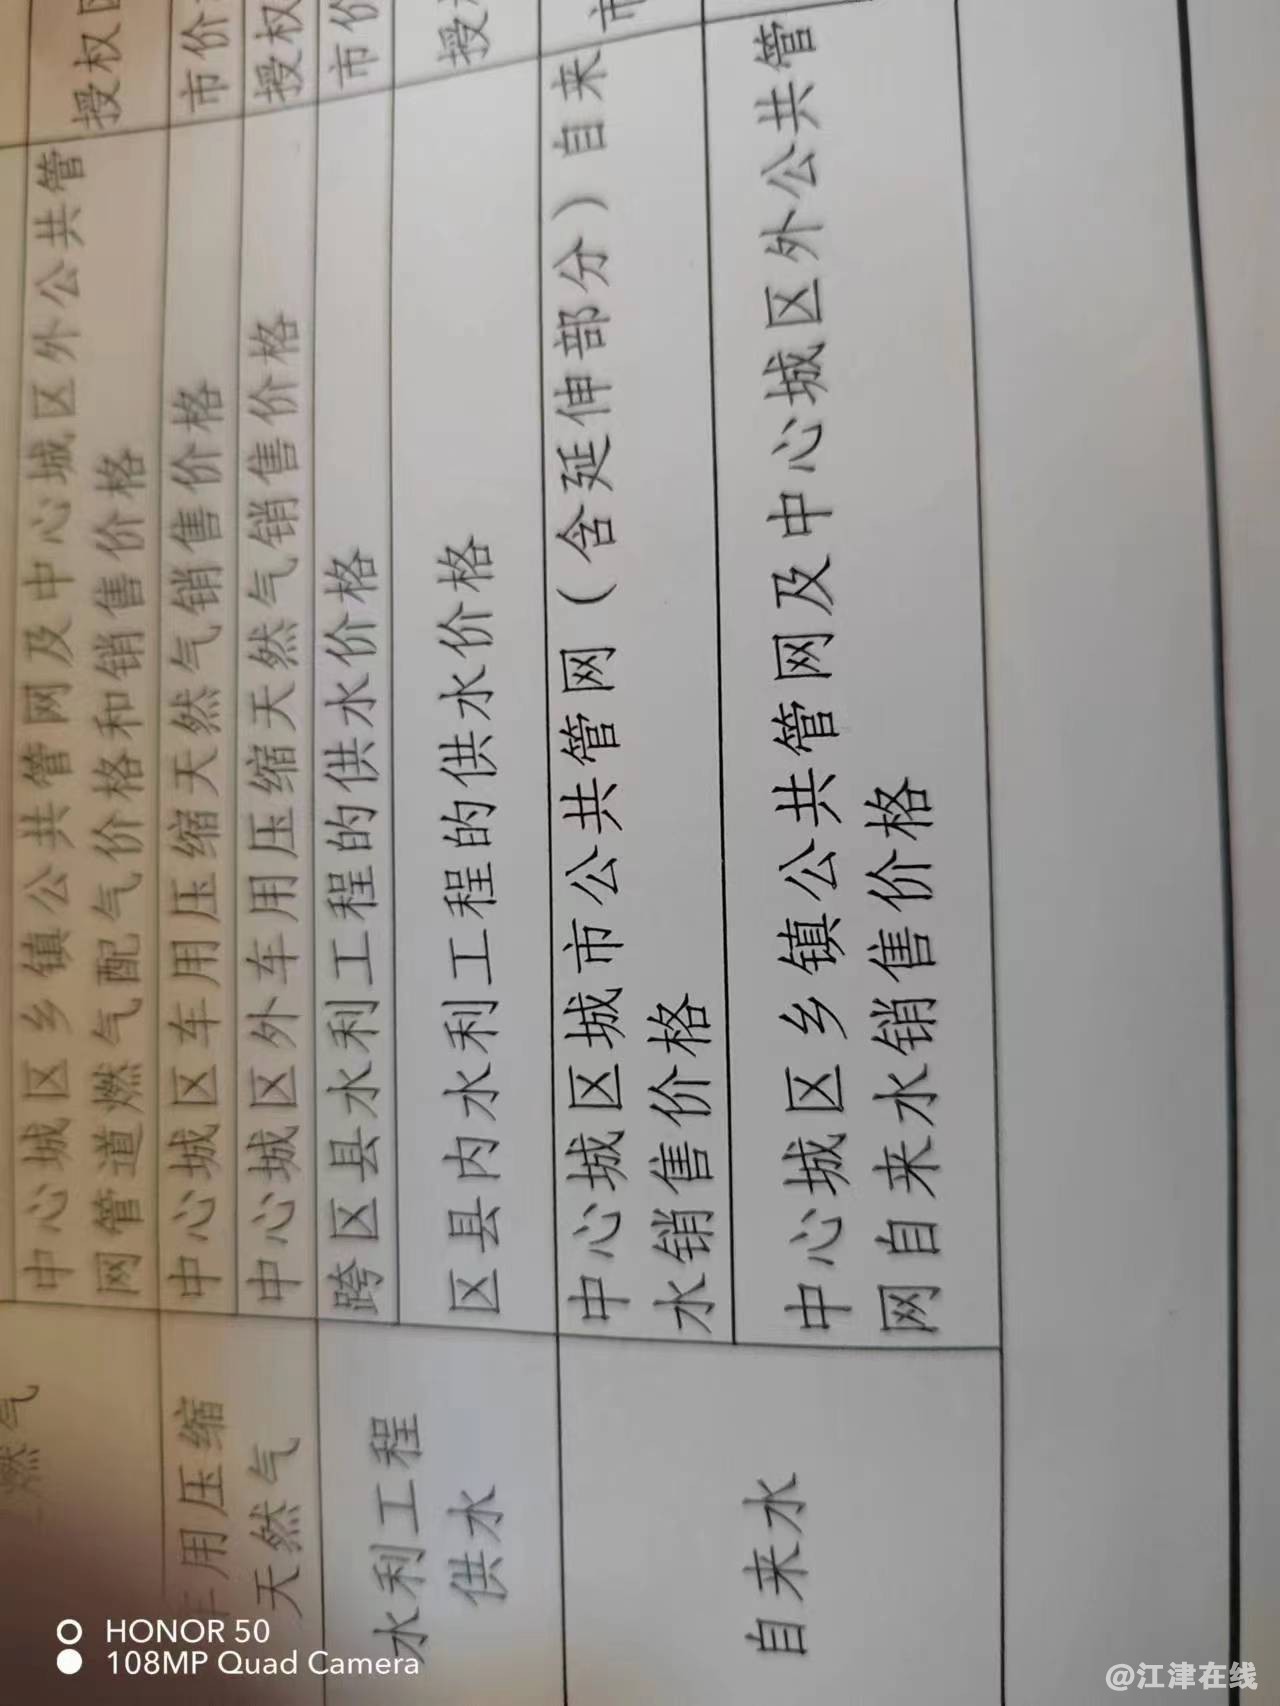 授权区
中心城区乡镇公共管网及中心城区外公共管
网管道燃气配气价格和销售价格
车用压缩
天然气
中心城区车用压缩天然气销售价格
市价
中心城区外车用压缩天然气销售价格
授权
水利工程
供水
跨区县水利工程的供水价格
市价
区县内水利工程的供水价格
授
自来水
中心城区城市公共管网(含延伸部分)自来
水销售价格
市
中心城区乡镇公共管网及中心城区外公共管
网自来水销售价格
HONOR 50
108MP Quad Camera
@江津在线